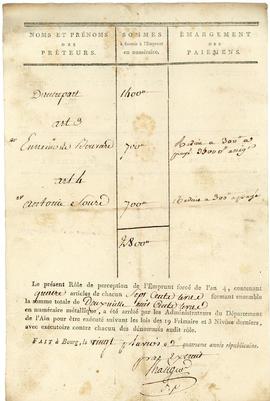 NOMS ET PRÉNOMS
DES
PRÊTEURS.
SOMMES
à fournir à l'Emprunt
en numéraire.
ÉMARGEMENT
DES
PAIEMENS.
1400
art 3
700
Réduit à 300
art 4
700
Réduit à 300
2800
Le présent Rôle de perception de l'Emprunt forcé de l'an 4, contenant
quatre articles de chacun Sept Cents livres formant ensemble
la somme totale de Deux mille huit Cents livres
en numéraire métallique, a été arrêté par les Administrateurs du Département
de l'Ain pour être exécuté suivant les lois des 19 Frimaire et 3 Nivôse derniers,
avec exécutoire contre chacun des dénommés audit rôle.
FAIT à Bourg, le vingt quatrieme année républicaine.